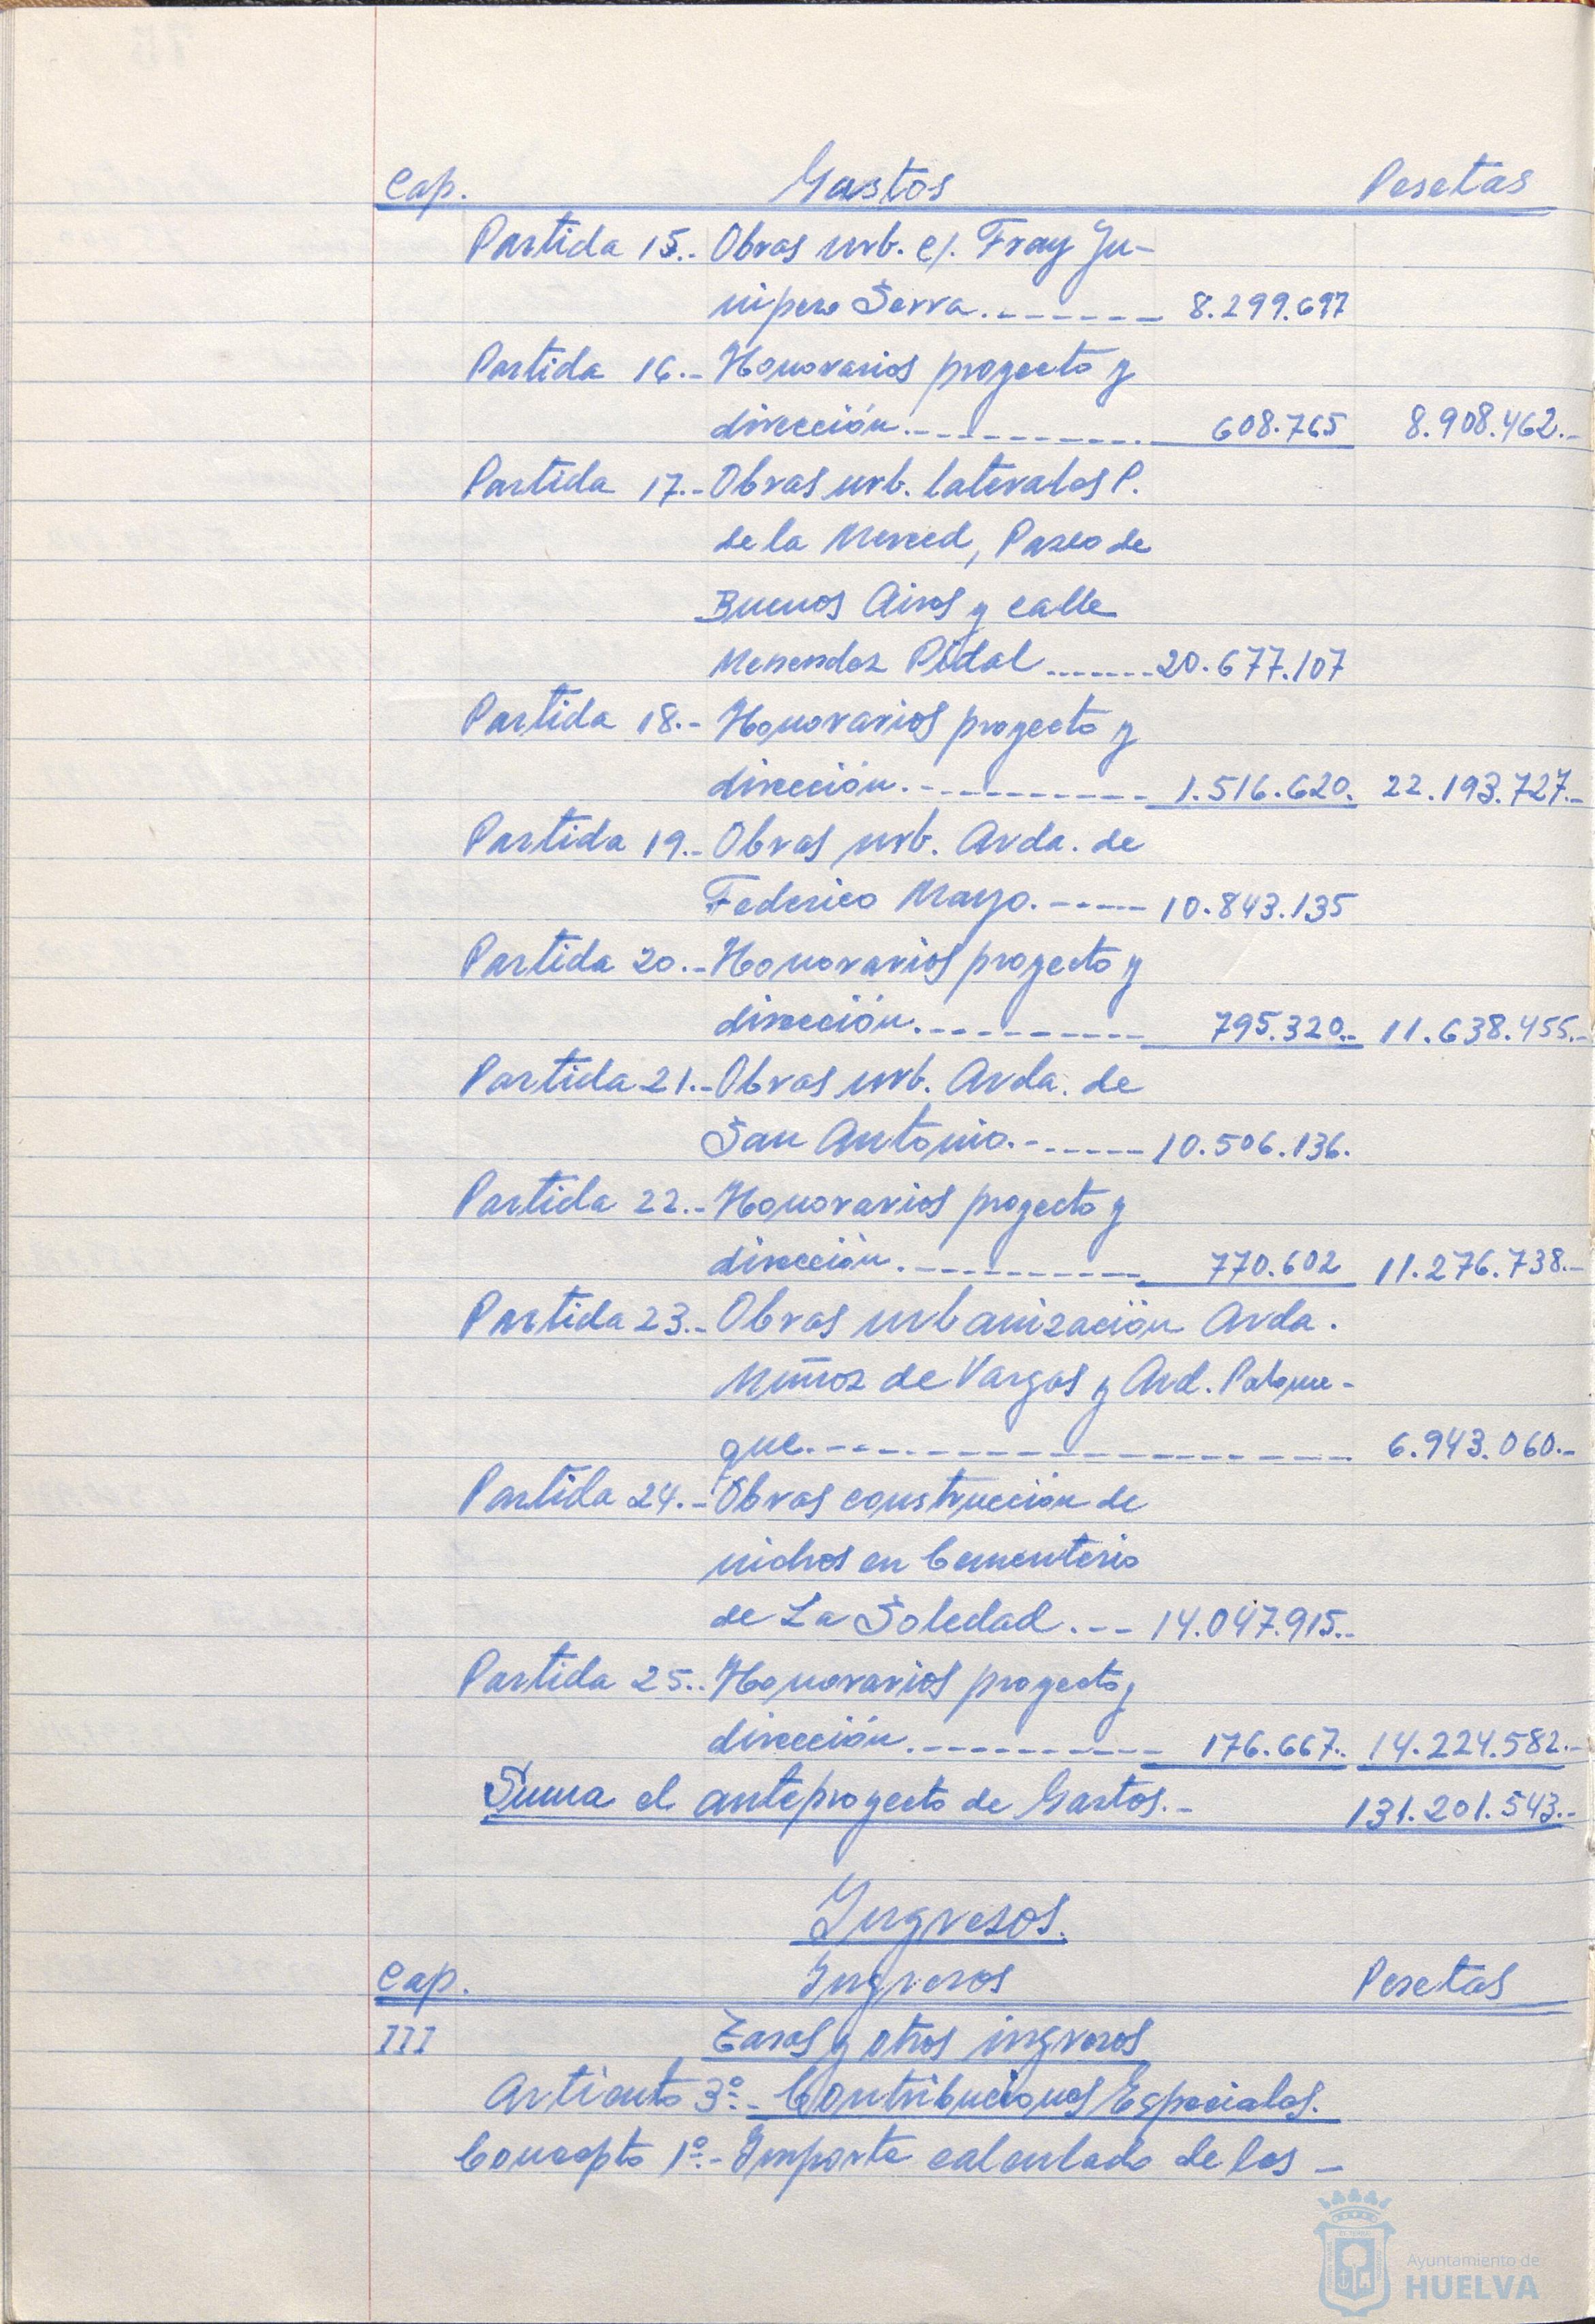 Cap. Gastos Pesetas
Partida 15.- Obras urb. c/. Fray Ju-
nipero Serra.------- 8.299.697
Partida 16.- Honorarios proyecto y
dirección.---------- 608.765 8.908.462.-
Partida 17.- Obras urb. laterales P.
de la Merced, Paseo de
Buenos Aires y calle
Menendez Pidal ------- 20.677.107
Partida 18.- Honorarios proyecto y
dirección.---------- 1.516.620. 22.193.727.-
Partida 19.- Obras urb. Avda. de
Federico Mayo.----- 10.843.135
Partida 20.- Honorarios proyecto y
dirección.---------- 795.320.- 11.638.455.-
Partida 21.- Obras urb. Avda. de
San Antonio.------- 10.506.136.
Partida 22.- Honorarios proyecto y
dirección.---------- 770.602 11.276.738.-
Partida 23.- Obras urbanización Avda.
Muñoz de Vargas y Avd. Palome-
que.------------------- 6.943.060.-
Partida 24.- Obras construcción de
nichos en Cementerio
de La Soledad.--- 14.047.915.-
Partida 25.- Honorarios proyecto y
dirección.---------- 176.667. 14.224.582.-
Suma el anteproyecto de Gastos.- 131.201.543.-
Ingresos.
Cap. Ingresos Pesetas
III Tasas y otros ingresos
Articulo 3º.- Contribuciones Especiales.
Concepto 1º.- Importe calculado de las -
Ayuntamiento de
HUELVA